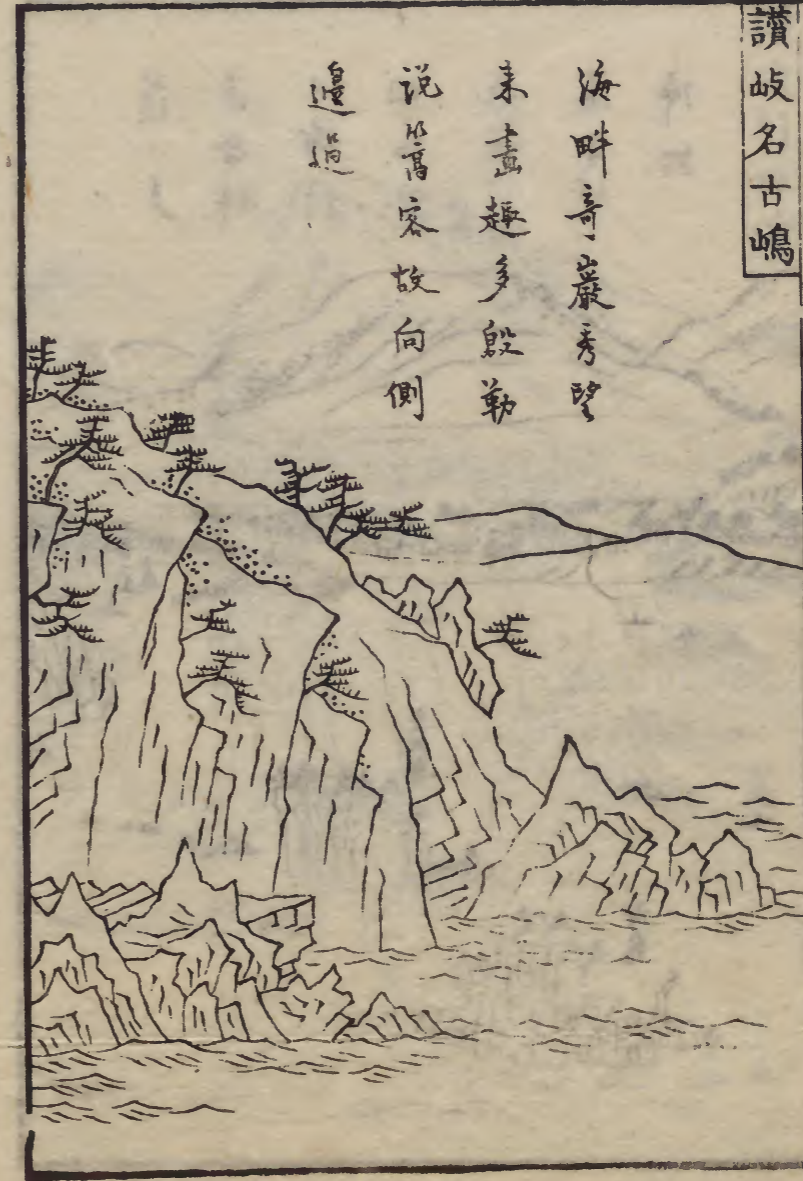 讃岐名古嶋
海畔奇巖秀望
来畫趣多殷勤
説篙客故向側
邉過